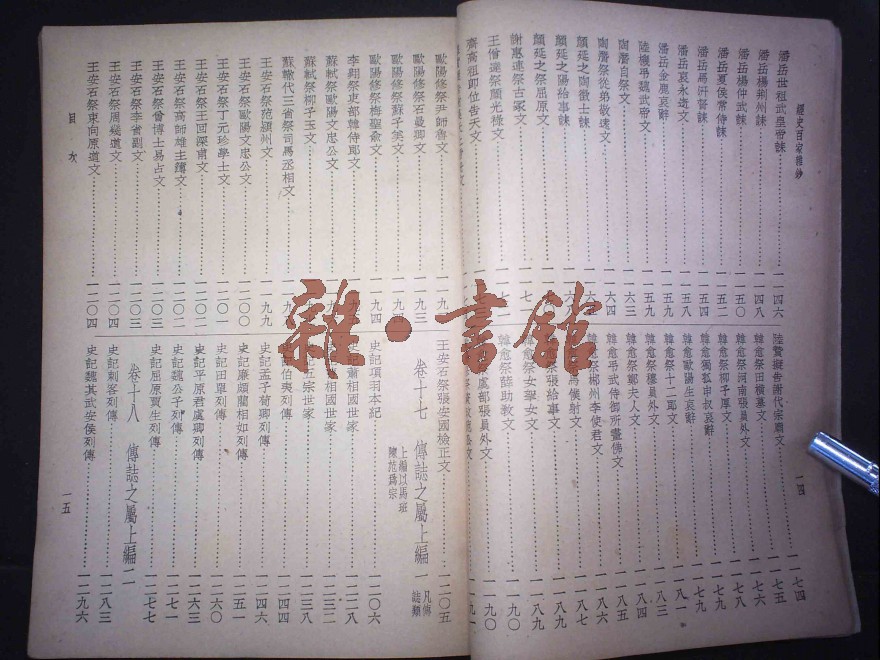 經史百家雜鈔
潘岳世祖武皇帝誄……一一四六
潘岳楊荊州誄……一一四八
潘岳楊仲武誄……一一五〇
潘岳夏侯常侍誄……一一五二
潘岳馬汧督誄……一一五四
潘岳哀永逝文……一一五八
潘岳金鹿哀辭……一一五九
陸機弔魏武帝文……一一五九
陶潛自祭文……一一六三
陶潛祭從弟敬遠文……一一六四
顏延之陶徵士誄
顏延之陽給事誄
顏延之祭屈原文
謝惠連祭古冢文
王僧達祭顏光祿文
齊高祖即位告天文
陸贄擬告謝代宗廟文……一一七四
韓愈祭田橫墓文……一一七五
韓愈祭河南張員外文……一一七六
韓愈祭柳子厚文……一一七八
韓愈獨孤申叔哀辭……一一七九
韓愈歐陽生哀辭……一一七九
韓愈祭十二郎文……一一八一
韓愈祭穆員外文……一一八三
韓愈祭鄭夫人文……一一八四
韓愈弔武侍御所畫佛文……一一八五
韓愈祭郴州李使君文……一一八六
馬僕射文……一一八七
祭張給事文……一一八九
韓愈祭女挐女文……一一八九
韓愈祭薛助教文……一一九〇
虞部張員外文……一一九〇
一四
歐陽修祭尹師魯文
歐陽修祭石曼卿文……一一九三
歐陽修祭蘇子美文
歐陽修祭梅聖俞文
李翺祭吏部韓侍郎文
蘇軾祭歐陽文忠公文
蘇軾祭柳子玉文
蘇轍代三省祭司馬丞相文
王安石祭范潁州文……一一九九
王安石祭歐陽文忠公文……一二〇〇
王安石祭丁元珍學士文……一二〇一
王安石祭王回深甫文……一二〇一
王安石祭高師雄主簿文……一二〇二
王安石祭曾博士易占文……一二〇二
王安石祭李省副文……一二〇三
王安石祭周幾道文……一二〇四
王安石祭束向原道文……一二〇四
目次
王安石祭張安國檢正文……一二〇五
卷十七 傳誌之屬上編一 凡傳誌類
上編以馬班
陳范為宗
史記項羽本紀……一二〇六
蕭相國世家……一二二八
相國世家……一二三二
記五宗世家……一二三八
伯夷列傳……一二四四
史記孟子荀卿列傳……一二四六
史記廉頗藺相如列傳……一二五一
史記田單列傳……一二六〇
史記平原君虞卿列傳……一二六三
史記魏公子列傳……一二七一
史記屈原賈生列傳……一二七七
卷十八 傳誌之屬上編二
史記刺客列傳……一二八三
史記魏其武安侯列傳……一二九六
一五
雜·書館